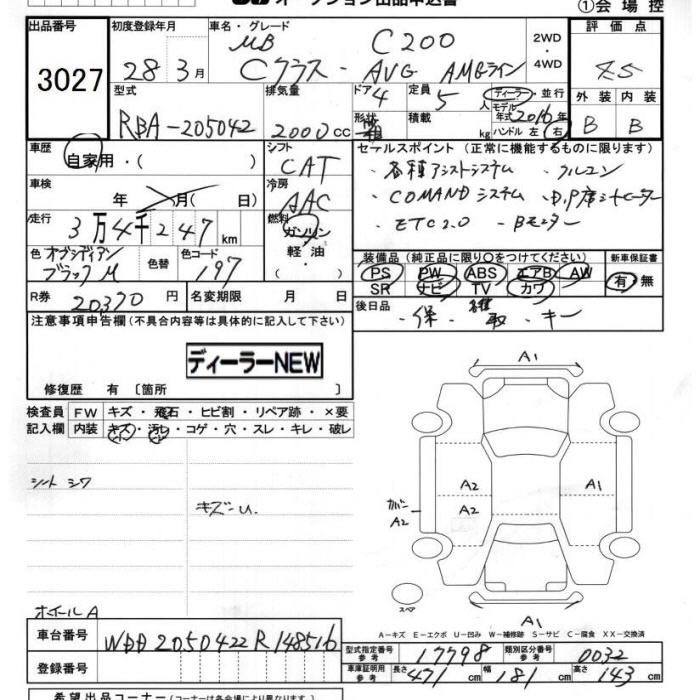 オークション出品申込書
①会場控
出品番号
3027
初度登録年月
28年3月
車名・グレード
MB C200
Cクラス - AVG AMGライン
2WD
・
4WD
評価点
4.5
外装 内装
B B
型式
RBA-205042
排気量
2000cc
ドア 4
形状
定員 5人
積載 kg
ディーラー・並行
モデル年式 2016年
ハンドル 左・右
車歴
自家用・( )
シフト
CAT
セールスポイント(正常に機能するものに限ります)
・各種アシストシステム ・クルコン
・COMANDシステム ・D,P席シートヒーター
・ETC2.0 ・Bモニター
車検
年 月( 日)
冷房
AAC
走行
3万4千247km
燃料
ガソリン
軽油
・( )
色 オブシディアンブラックM
色替
色コード 197
装備品(純正品に限り○をつけてください)
PS PW ABS エアB AW
SR ナビ TV カワ
新車保証書
有・無
R券 20370円
名変期限 月 日
後日品
・保 ・取 ・キー
注意事項申告欄(不具合内容等は具体的に記入して下さい)
ディーラーNEW
修復歴 有〔箇所 〕
検査員記入欄
FW キズ・飛石・ヒビ割・リペア跡・×要
内装 キズ・汚レ・コゲ・穴・スレ・キレ・破レ
シートシワ
キズ-U.
ホイールA
A1
A2 A1
A2 A2
カバー
A2
スペア
A1
A-キズ E-エクボ U-凹み W-補修跡 S-サビ C-腐食 XX-交換済
車台番号
WDD2050422R148516
登録番号
型式指定番号 参考 17798
類別区分番号 参考 0032
車庫証明用 参考 長さ 471cm 幅 181cm 高さ 143cm
希望出品コーナー(コーナーは各会場により異なります)